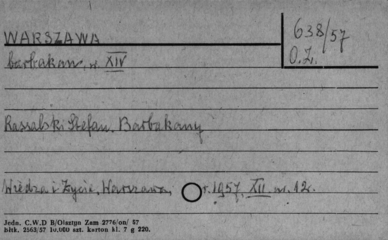 WARSZAWA
638/57
O.Z.
barbakan, w XIV
Kassalski Stefan, Barbakany
Wiedza i Życie, Warszawa, r. 1957, XII nr. 12.
Jedn. C.W.D B/Olsztyn Zam 2776/on/ 57
Bltk. 2563/57 10.000 szt. karton kl. 7 g 220.